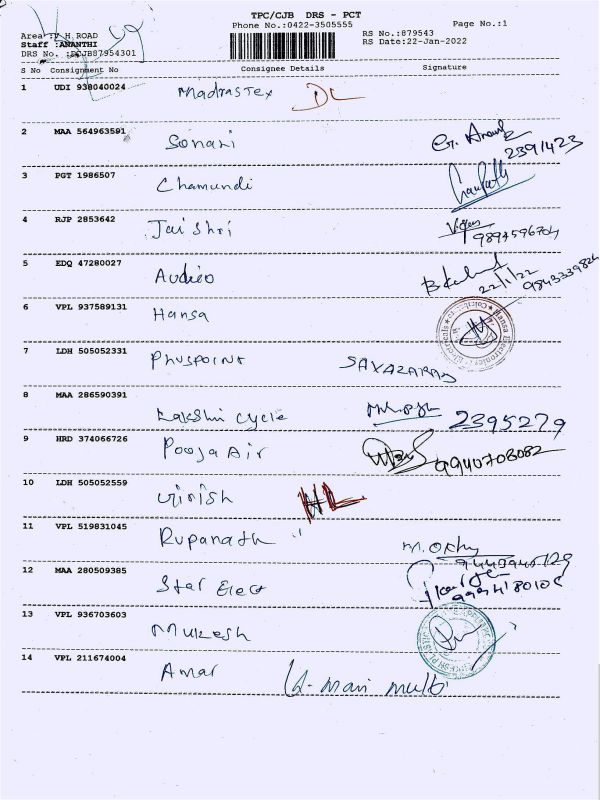 TPC/CJB DRS - PCT
Phone No.:0422-3505555
Page No.:1
Area :V.H.ROAD
Staff :ANANTHI
DRS No. :PCJB87954301
RS No.:879543
RS Date:22-Jan-2022
S No Consignment No Consignee Details Signature
1 UDI 938040024 Madras Tex DL
2 MAA 564963591 Sonari
2391423
3 PGT 1986507 Chamundi
4 RJP 2853642 Jai Shri
5 EDQ 47280027 Audieo
22/1/22 9843339824
6 VPL 937589131 Hansa
7 LDH 505052331 Pluspoint
8 MAA 286590391 Lakshmi cycle 2395279
9 HRD 374066726 Pooja Air 9940708082
10 LDH 505052559 Girish
11 VPL 519831045 Rupanath
12 MAA 280509385 Star Elect
13 VPL 936703603 Mukesh
14 VPL 211674004 Amar